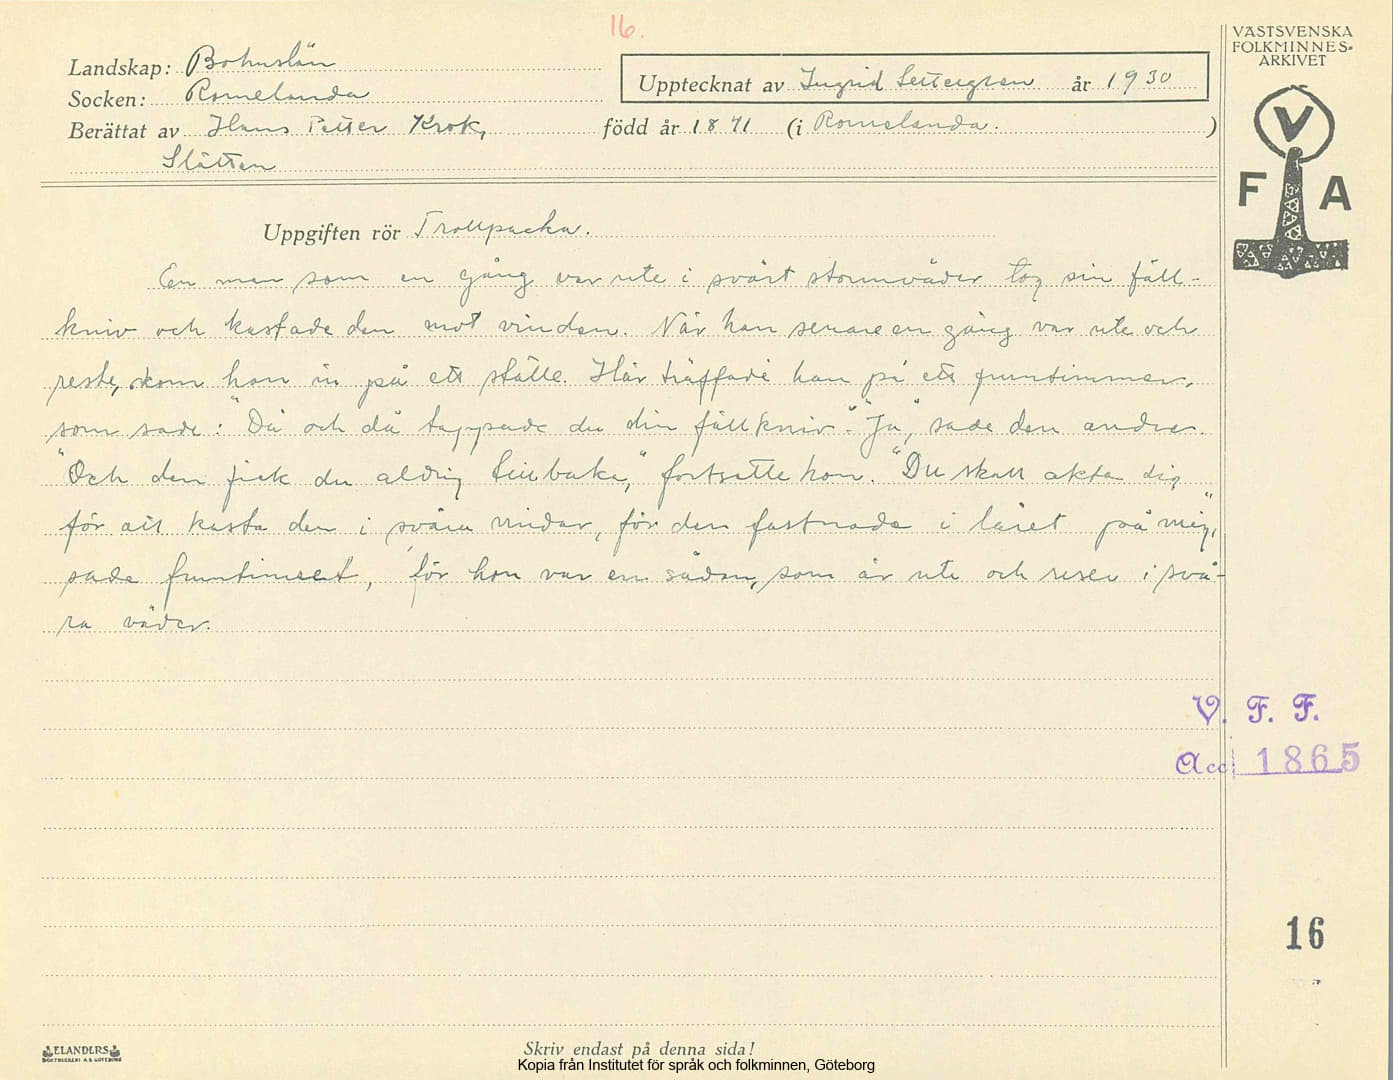 16.
VÄSTSVENSKA
FOLKMINNES-
ARKIVET
V
F A
Landskap: Bohuslän
Upptecknat av Ingrid Settergren år 1930
Socken: Romelanda
Berättat av Hans Petter Krok, född år 1871 (i Romelanda.)
Slätten
Uppgiften rör Trollpacka.
En man som en gång var ute i svårt stormväder tog sin fäll-
kniv och kastade den mot vinden. När han senare en gång var ute och
reste, kom han in på ett ställe. Här träffade han på ett fruntimmer,
som sade: "Då och då tappade du din fällkniv". "Ja", sade den andre.
"Och den fick du aldrig tillbaka," fortsatte hon. "Du skall akta dig
för att kasta den i svåra vindar, för den fastnade i låret på mig",
sade fruntimret, för hon var en sådan, som är ute och reser i svå-
ra väder.
V. F. F.
Acc. 1865
16
ELANDERS
BOKTRYCKERI A.B. GÖTEBORG
Skriv endast på denna sida!
Kopia från Institutet för språk och folkminnen, Göteborg